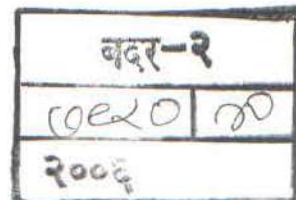 बदर-२
७९२०
२००६